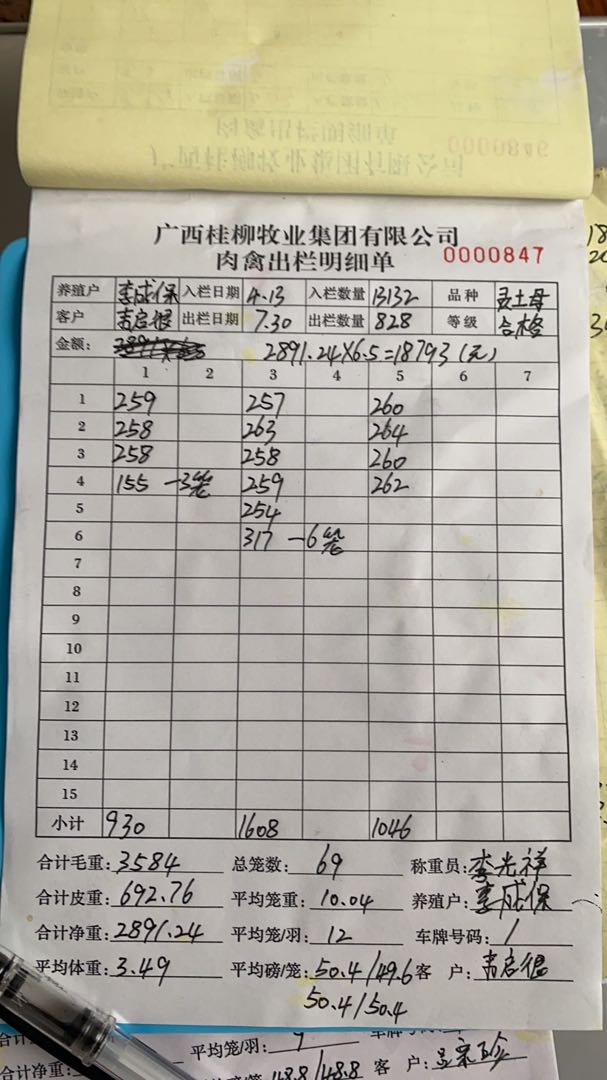 广西桂柳牧业集团有限公司
肉禽出栏明细单 0000847
养殖户 李成保 入栏日期 4.13 入栏数量 13132 品种 灵土母
客户 韦启银 出栏日期 7.30 出栏数量 828 等级 合格
金额: 2891.24×6.5=18793(元)
1 2 3 4 5 6 7
1 259 257 260
2 258 263 264
3 258 258 260
4 155 -3笼 259 262
5 254
6 317 -6笼
7
8
9
10
11
12
13
14
15
小计 930 1608 1046
合计毛重: 3584 总笼数: 69 称重员: 李光祥
合计皮重: 692.76 平均笼重: 10.04 养殖户: 李成保
合计净重: 2891.24 平均笼/羽: 12 车牌号码: /
平均体重: 3.49 平均磅/笼: 50.4/49.6 客户: 韦启银
50.4/50.4
平均笼/羽:
合计净重: 48.8/48.8 客户: